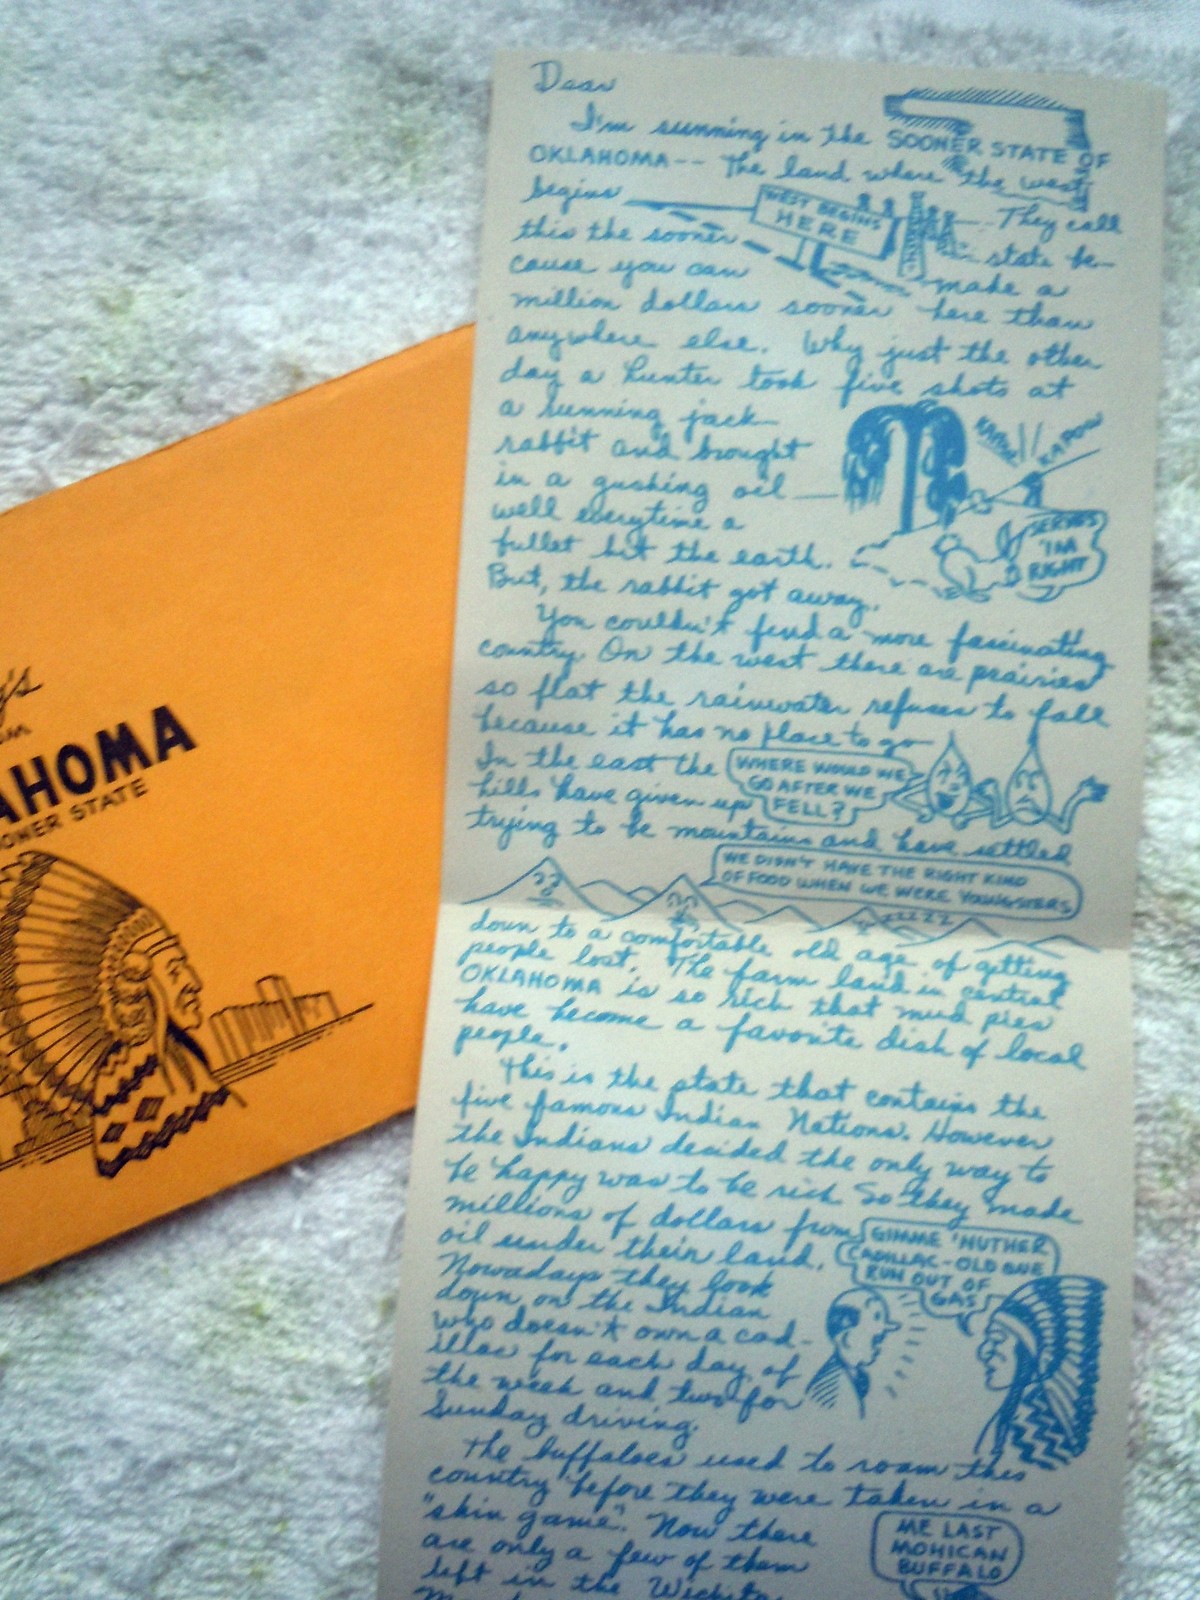 Dear
I'm running in the SOONER STATE OF
OKLAHOMA-- The land where the west
begins
WEST BEGINS
HERE
They call
this the sooner state be-
cause you can make a
million dollars sooner here than
anywhere else. Why just the other
day a hunter took five shots at
a running jack
rabbit and brought
in a gushing oil
well everytime a
bullet hit the earth.
But, the rabbit got away.
KAPOW
SERVES
'IM
RIGHT
You couldn't find a more fascinating
country. On the west there are prairies
so flat the rainwater refuses to fall
because it has no place to go
WHERE WOULD WE
GO AFTER WE
FELL?
In the east the
hills have given up
trying to be mountains and have settled
WE DIDN'T HAVE THE RIGHT KIND
OF FOOD WHEN WE WERE YOUNGSTERS
down to a comfortable old age of getting
people lost. The farm land in central
OKLAHOMA is so rich that mud pies
have become a favorite dish of local
people.
This is the state that contains the
five famous Indian Nations. However
the Indians decided the only way to
be happy was to be rich So they made
millions of dollars from
oil under their land.
GIMME 'NUTHER
CADILLAC-OLD ONE
RUN OUT OF
GAS
Nowadays they look
down on the Indian
who doesn't own a cad-
illac for each day of
the week and two for
Sunday driving.
The buffaloes used to roam this
country before they were taken in a
"skin game". Now there
are only a few of them
left in the Wichita
ME LAST
MOHICAN
BUFFALO
AHOMA
OONER STATE